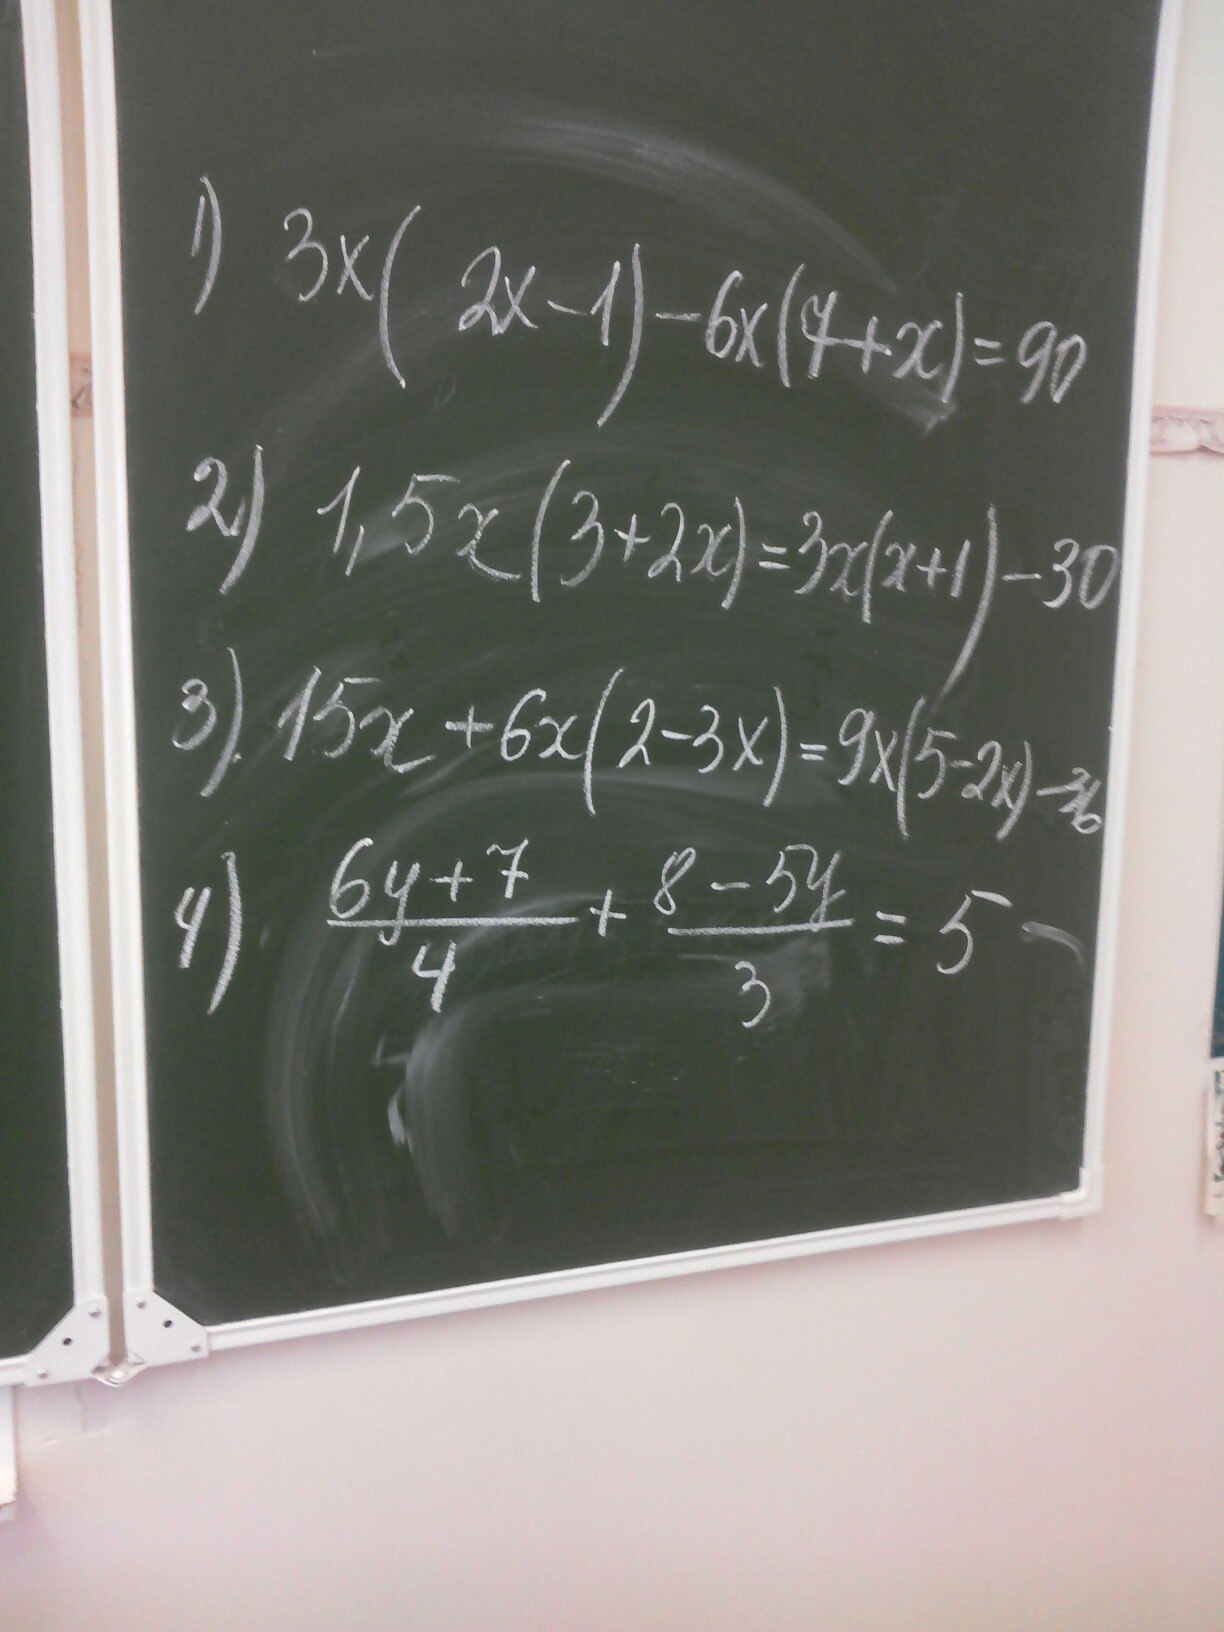 1) 3x(2x-1)-6x(7+x)=90
2) 1,5x(3+2x)=3x(x+1)-30
3) 15x+6x(2-3x)=9x(5-2x)-36
4) \frac{6y+7}{4}+\frac{8-5y}{3}=5